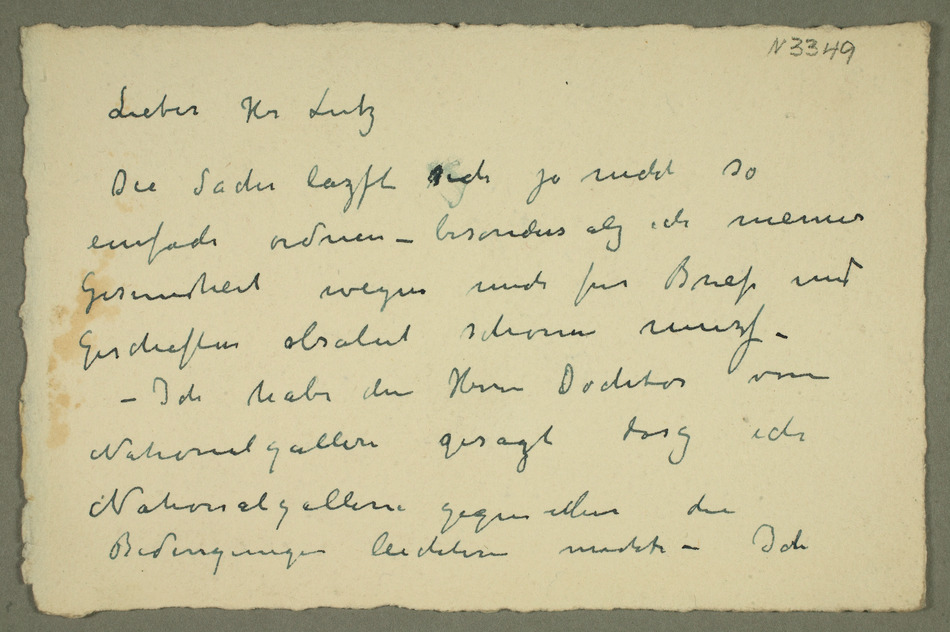 N 3349
Lieber Hr Lutz
Die Sache lazft sich ja nicht so
einfach ordnen – besonders alz ich meiner
Gesundheit wegen mich für Brief und
Geschäften absolut schonen muszf –
– Ich habe den Herrn Docktor vom
Nationalgallerie gesagt dasz ich
Nationalgallerie gegenüber die
Bedingungen leichtere machte – Ich